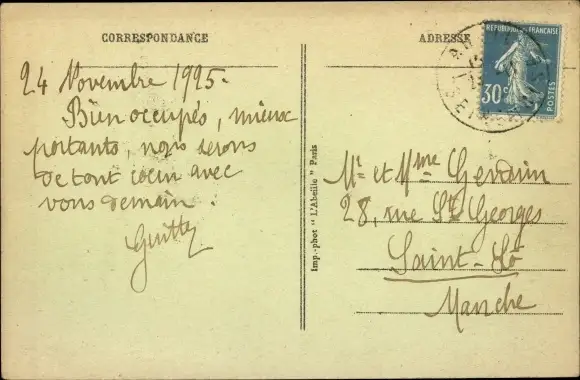 CORRESPONDANCE
24 Novembre 1925.
Bien occupés, mieux
portants, nous serons
de tout cœur avec
vous demain.
Guitty
Imp.-phot "L'Abeille" Paris
ADRESSE
REPUBLIQUE FRANÇAISE
30c
POSTES
Mr et Mme Gervain
28, rue St Georges
Saint-Lô
Manche